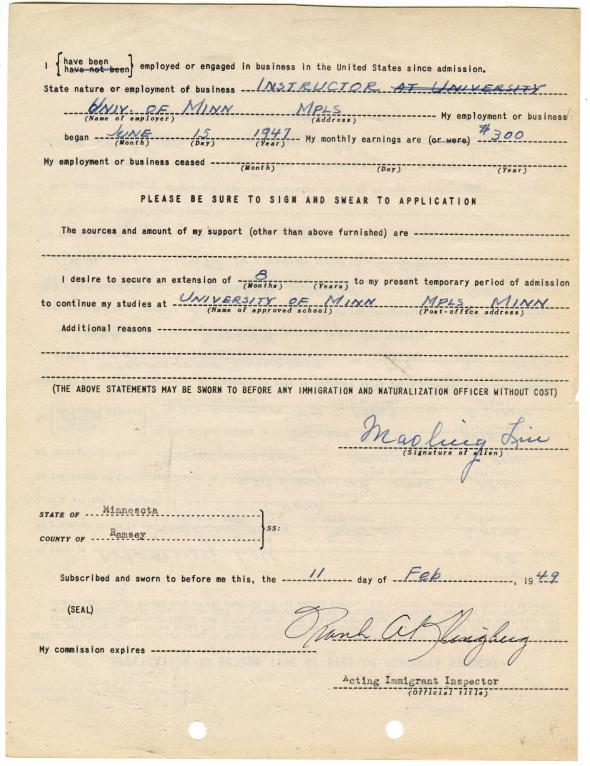 I { have been
have not been } employed or engaged in business in the United States since admission.
State nature or employment of business INSTRUCTOR AT UNIVERSITY
UNIV. OF MINN MPLS My employment or business
(Name of employer) (Address)
began JUNE 15 1947 My monthly earnings are (or were) $300
(Month) (Day) (Year)
My employment or business ceased
(Month) (Day) (Year)
PLEASE BE SURE TO SIGN AND SWEAR TO APPLICATION
The sources and amount of my support (other than above furnished) are
I desire to secure an extension of 8 to my present temporary period of admission
(Months) (Years)
to continue my studies at UNIVERSITY OF MINN MPLS MINN
(Name of approved school) (Post-office address)
Additional reasons
(THE ABOVE STATEMENTS MAY BE SWORN TO BEFORE ANY IMMIGRATION AND NATURALIZATION OFFICER WITHOUT COST)
Maoling Lin
(Signature of alien)
STATE OF Minnesota
COUNTY OF Ramsey } SS:
Subscribed and sworn to before me this, the 11 day of Feb, 1949
(SEAL)
Frank A Klingberg
My commission expires
Acting Immigrant Inspector
(Official title)